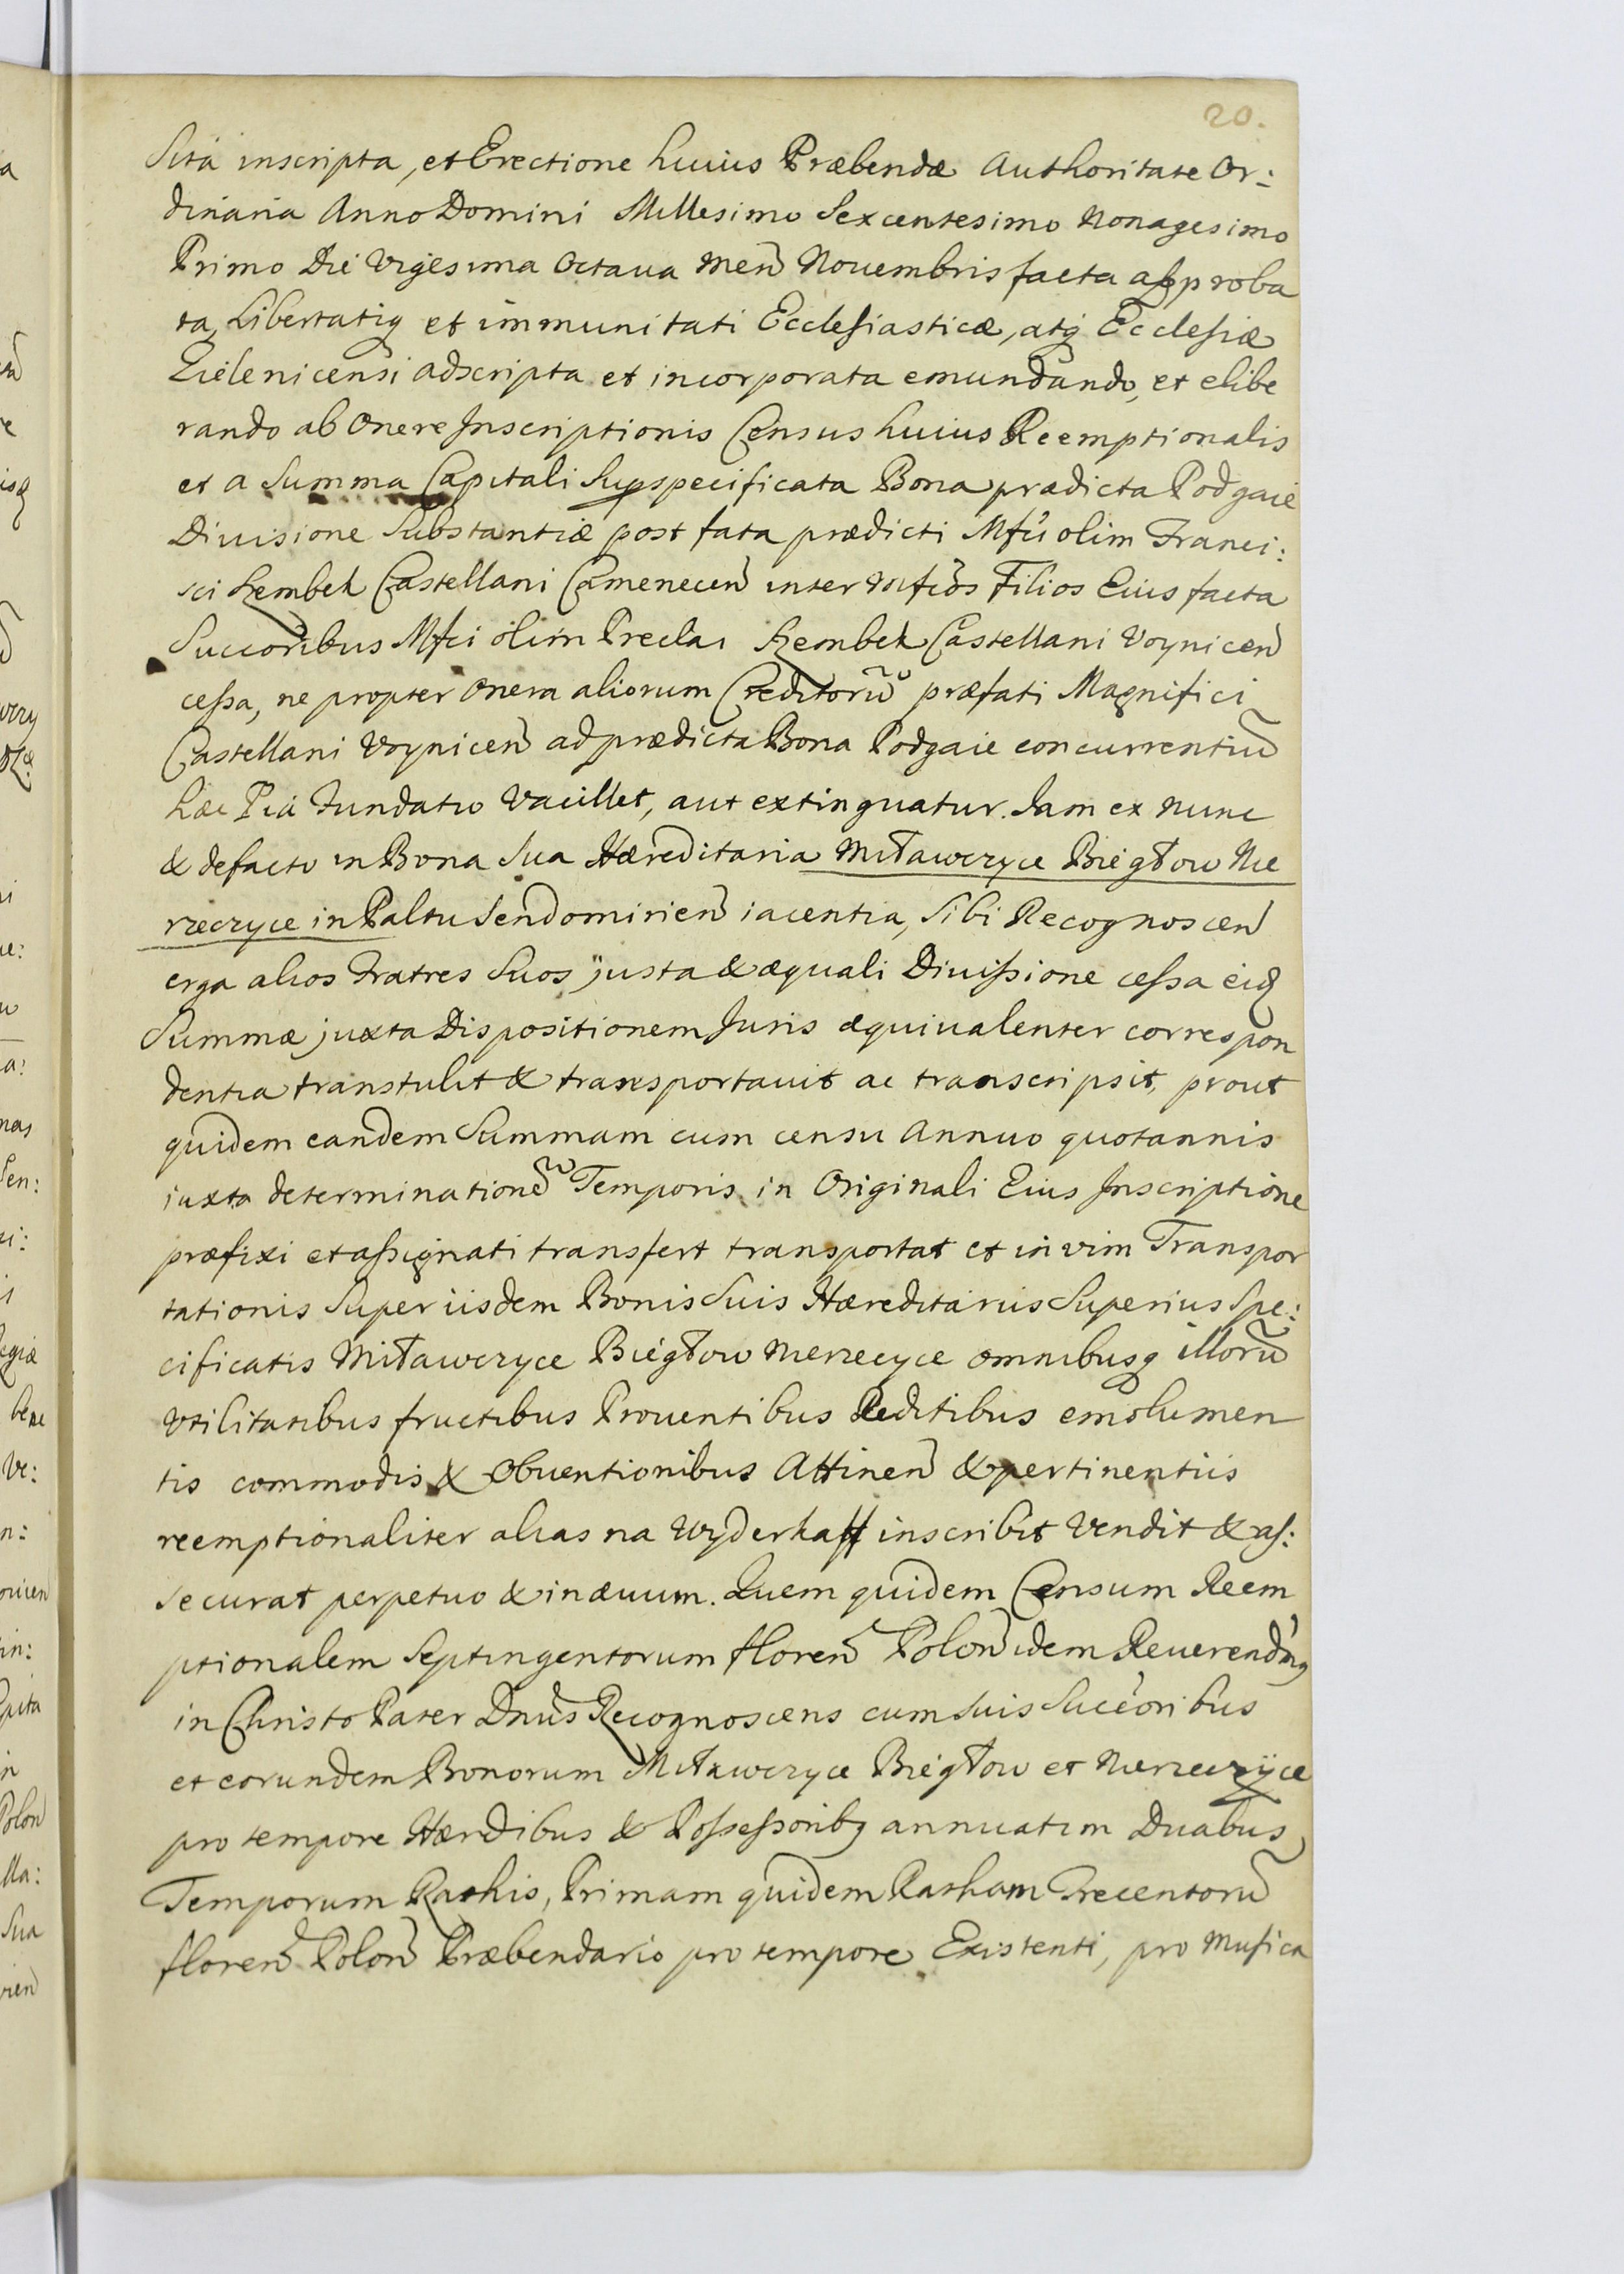 20.
Sita inscripta, et Erectione huius Præbendæ Authoritate Or:
dinaria Anno Domini Millesimo Sexcentesimo Nonagesimo
Primo Die Vigesima Octaua Men̄ Nouembris facta approba
ta, Libertatiq et immunitati Ecclesiasticæ, atq Ecclesiæ
Zielenicensi adscripta et incorporata emundando, et elibe
rando ab Onere Inscriptionis Census huius Reemptionalis
et a Summa Capitali Sup specificata Bona prædicta Podgaie
Diuisione Substantiæ post fata prædicti Mfci olim Franci:
sci Szembek Castellani Camenecen̄ inter Mfcos Filios Eius facta
Succoribus Mfci olim Preclai Szembek Castellani Voynicen̄
cessa, ne propter onera aliorum Creditorū præfati Magnifici
Castellani Voynicen̄ ad prædicta Bona Podgaie concurrentiū
hæc Pia Fundatio Vacillet, aut extinguatur. Jam ex nunc
& defacto in Bona Sua Hæreditaria Mitawczyce Biegłow Nie
rzeczyce in Paltu Sendomirien̄ iacentia, Sibi Recognoscen̄
erga alios Fratres Suos justa & æquali Diuissione cessa eid
Summæ juxta Dispositionem Juris æquiualenter correspon
dentia transtulit & transportauit ac transcripsit, prout
quidem eandem Summam cum censu Annuo quotannis
iuxta determinationē Temporis in Originali Eius Inscriptione
præfixi et assignati transfert transportat et in vim Transpor
tationis Super iisdem Bonis Suis Hæreditariis Superius Spe:
cificatis Mitawczyce Biegłow Nierzecyce omnibusq illorū
Vtilitatibus fructibus Prouentibus Reditibus emolumen
tis commodis & Obuentionibus Attinen̄ & pertinentiis
reemptionaliter alias na Wyderkaff inscribit Vendit & as:
securat perpetuo & in æuum. Quem quidem Censum Reem
ptionalem Septingentorum floren̄ Polon̄ idem Reuerendmq
in Christo Pater Dnūs Recognoscens cum Suis Succoribus
et eorundem Bonorum Mitawczyce Biegłow et Nierzeczyce
pro tempore Hærdibus & Possessoribq annuatim Duabus
Temporum Rathis, Primam quidem Ratham Trecentorū
floren̄ Polon̄ Præbendario pro tempore Existenti, pro Musica